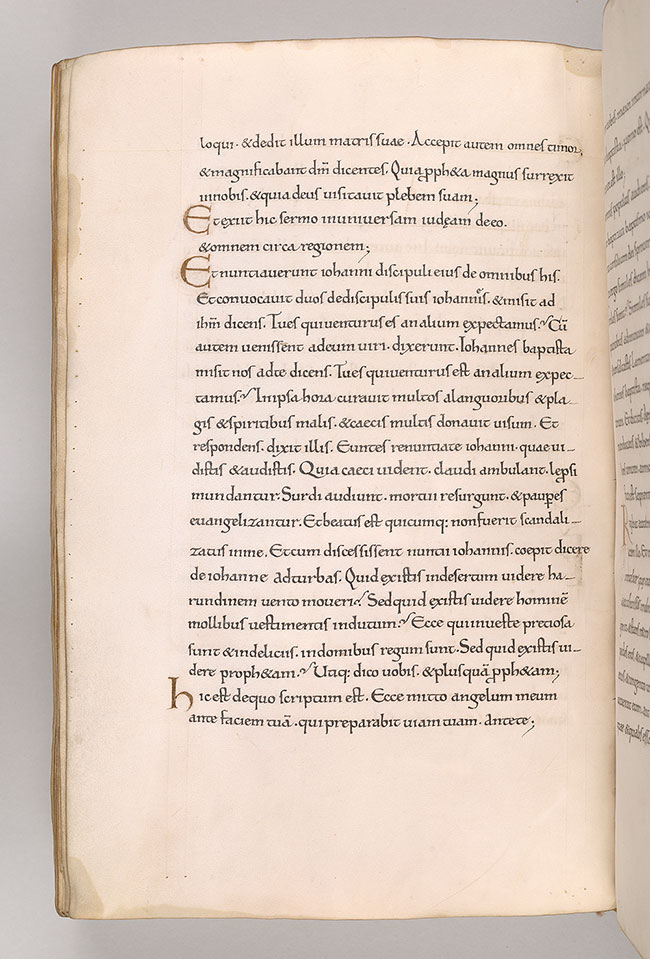 loqui · & dedit illum matri suae · Accepit autem omnes timor;
& magnificabant dm̄ dicentes. Quia pph&a magnus surrexit
in nobis. & quia deus uisitauit plebem suam;
Et exiit hic sermo in uniuersam iudęam de eo.
& omnem circa regionem;
Et nuntiauerunt iohanni discipuli eius de omnibus his.
Et conuocauit duos de discipulis suis iohannes. & misit ad
ihm̄ dicens. Tu es qui uenturus es an alium expectamus? Cū
autem uenissent ad eum uiri. dixerunt. Iohannes baptista
misit nos ad te dicens. Tu es qui uenturus est an alium expec-
tamus? In ipsa hora curauit multos a languoribus & pla-
gis & spiritibus malis. & caecis multis donauit uisum. Et
respondens. dixit illis. Euntes renuntiate iohanni. quae ui-
distis & audistis. Quia caeci uident. claudi ambulant. lepsi
mundantur. Surdi audiunt. mortui resurgunt. & paupes
euangelizantur. Et beatus est quicumq: non fuerit scandali-
zatus in me. Et cum discessissent nuntii iohannis. coepit dicere
de iohanne ad turbas. Quid existis in desertum uidere ha-
rundinem uento moueri? Sed quid existis uidere hominē
mollibus uestimentis indutum? Ecce qui in ueste preciosa
sunt & in deliciis. in domibus regum sunt. Sed quid existis ui-
dere proph&am? Utiq: dico uobis. & plus quā pph&am;
hic est de quo scriptum est. Ecce mitto angelum meum
ante faciem tuā · qui preparabit uiam tuam · ante te;